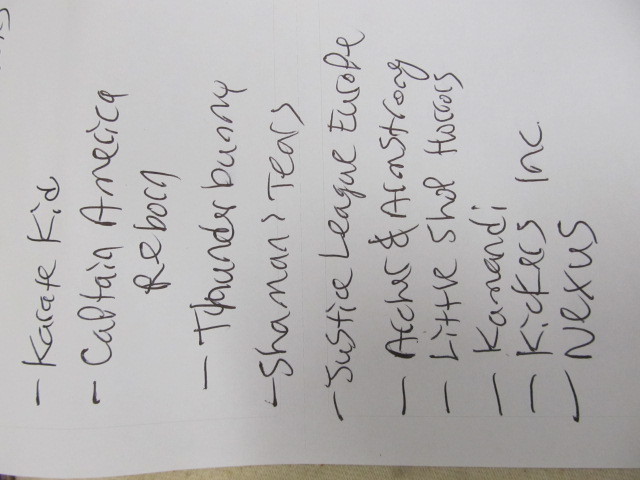 - Karate Kid
- Captain America
Reborn
- Thunderbunny
- Shaman's Tears
- Justice League Europe
- Archer & Armstrong
- Little Shop Horrors
- Kamandi
- Kickers Inc.
- Nexus